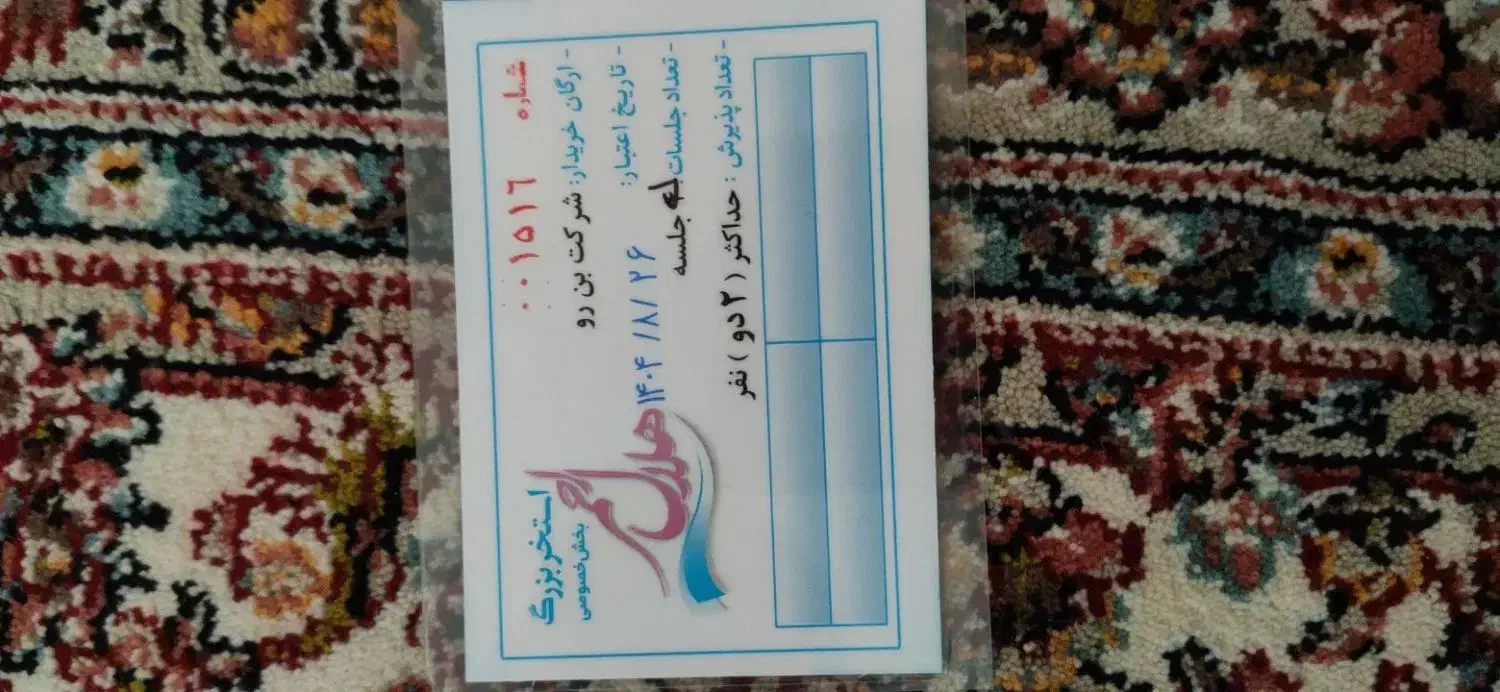 استخر بزرگ
بخش خصوصی
هلال احمر
شماره ۰۰۱۵۱۶
- ارگان خریدار: شرکت بن رو
- تاریخ اعتبار: ۱۴۰۴/۸/۲۶
- تعداد جلسات جلسه
- تعداد پذیرش : حداکثر ( ۲ دو ) نفر